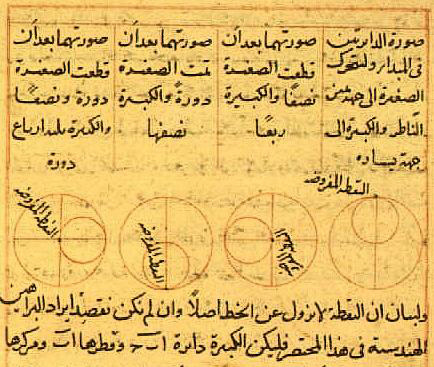 صورة الدايرتين
فى المبدا ولتتحرك
الصغيرة الى جهة يمين
الناظر والكبيرة الى
جهة يساره
صورتهما بعد ان
قطعت الصغيرة
نصفا والكبيرة
ربعا
صورتهما بعد ان
تمت الصغيرة
دورة والكبيرة
نصفها
صورتهما بعد ان
قطعت الصغيرة
دورة ونصفا
والكبيرة ثلثة ارباع
دورة
النقطة المفروضة
النقطة المفروضة
النقطة المفروضة
النقطة المفروضة
ولبيان ان النقطة لا تزول عن الخط اصلا وان لم نكن نقصد ايراد البراهين
الهندسية فى هذا المختصر فليكن الكبيرة دائرة اب وقطرها اب ومركزها